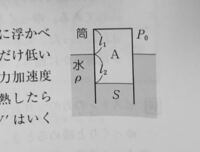 に浮かべ
だけ低い
力加速度
熱したら
はいく
筒
P₀
l₁
A
水
ρ
l₂
S